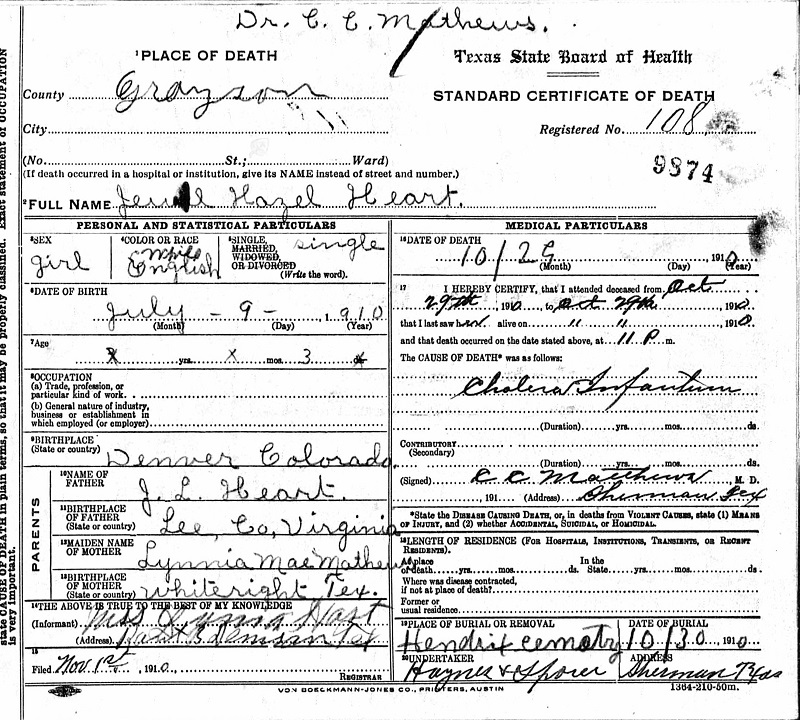 Dr. C. C. Mathews.
¹PLACE OF DEATH
Texas State Board of Health
County Grayson
STANDARD CERTIFICATE OF DEATH
City
Registered No. 108
(No. St.; Ward)
9874
(If death occurred in a hospital or institution, give its NAME instead of street and number.)
²FULL NAME Jewel Hazel Heart.
PERSONAL AND STATISTICAL PARTICULARS
³SEX girl
⁴COLOR OR RACE White English
⁵SINGLE, MARRIED, WIDOWED, OR DIVORCED (Write the word). single
⁶DATE OF BIRTH
July - 9 - 1910
(Month) (Day) (Year)
⁷Age
X yrs. X mos. 3 ds.
⁸OCCUPATION
(a) Trade, profession, or
particular kind of work.
(b) General nature of industry,
business or establishment in
which employed (or employer)
⁹BIRTHPLACE
(State or country) Denver Colorado.
PARENTS
¹⁰NAME OF
FATHER J. L. Heart.
¹¹BIRTHPLACE
OF FATHER
(State or country) Lee, Co, Virginia
¹²MAIDEN NAME
OF MOTHER Lynnia Mae Mathews
¹³BIRTHPLACE
OF MOTHER
(State or country) Whiteright Tex.
¹⁴THE ABOVE IS TRUE TO THE BEST OF MY KNOWLEDGE
(Informant)
(Address) Tex
¹⁵
Filed Nov 1st, 1910.
REGISTRAR
MEDICAL PARTICULARS
¹⁶DATE OF DEATH
10/29 1910
(Month) (Day) (Year)
¹⁷ I HEREBY CERTIFY, that I attended deceased from Oct
29th, 1910, to Oct 29th 1910
that I last saw her alive on " " 1910
and that death occurred on the date stated above, at 11 P. m.
The CAUSE OF DEATH* was as follows:
Cholera Infantum
(Duration) yrs. mos. ds.
CONTRIBUTORY
(Secondary)
(Duration) yrs. mos. ds.
(Signed) C C Matthews M. D.
, 191 (Address) Sherman Tex
*State the DISEASE CAUSING DEATH, or, in deaths from VIOLENT CAUSES, state (1) MEANS
OF INJURY, and (2) whether ACCIDENTAL, SUICIDAL, or HOMICIDAL.
¹⁸LENGTH OF RESIDENCE (FOR HOSPITALS, INSTITUTIONS, TRANSIENTS, OR RECENT
RESIDENTS).
At place In the
of death yrs. mos. ds. State yrs. mos. ds.
Where was disease contracted,
if not at place of death?
Former or
usual residence
¹⁹PLACE OF BURIAL OR REMOVAL DATE OF BURIAL
Hendrix cemetry 10/30 1910
²⁰UNDERTAKER ADDRESS
Haynes & Sherman Texas
VON BOECKMANN-JONES CO., PRINTERS, AUSTIN
1364-210-50m.
state CAUSE OF DEATH in plain terms, so that it may be properly classified. Exact statement of OCCUPATION
is very important.